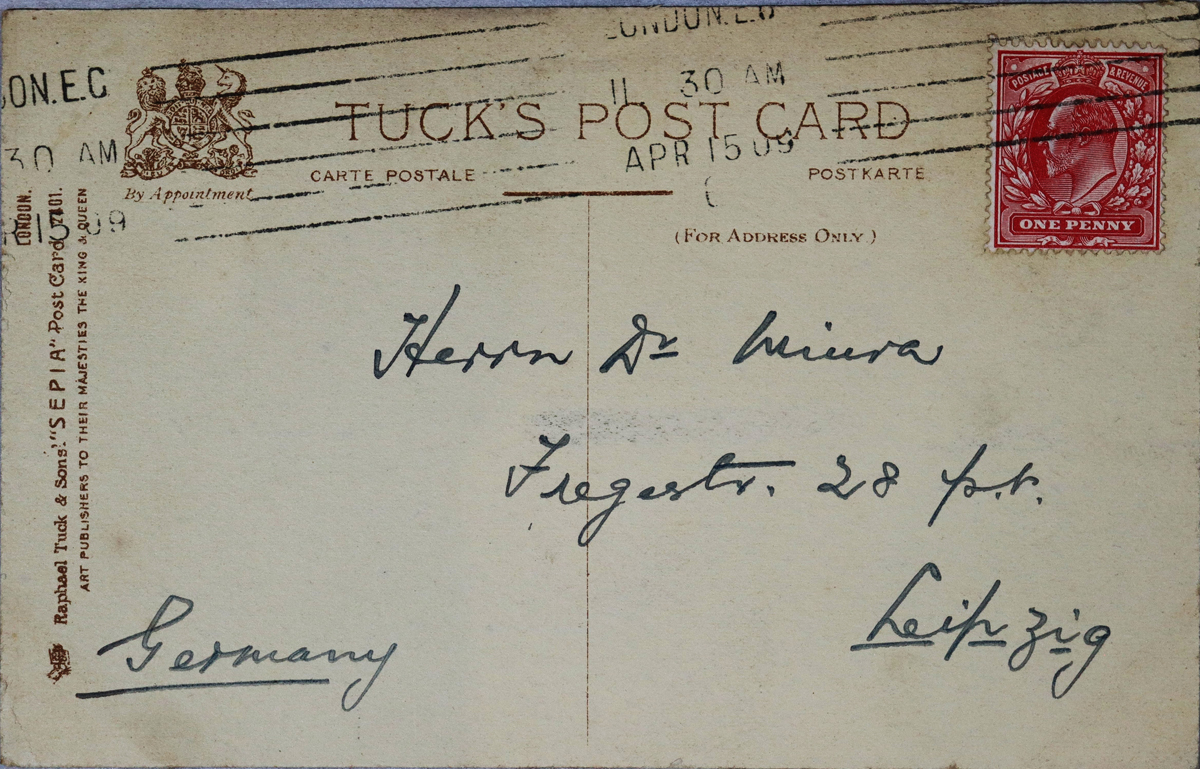 LONDON.E.C
11 30 AM
APR 15 09
ON.E.C
30 AM
R 15 09
TUCK'S POST CARD
CARTE POSTALE
POSTKARTE
By Appointment
(FOR ADDRESS ONLY)
POSTAGE & REVENUE
ONE PENNY
Raphael Tuck & Sons' "SEPIA" Post Card
LONDON.
ART PUBLISHERS TO THEIR MAJESTIES THE KING & QUEEN
Herrn Dr Miura
Fregestr. 28 p.r.
Leipzig
Germany